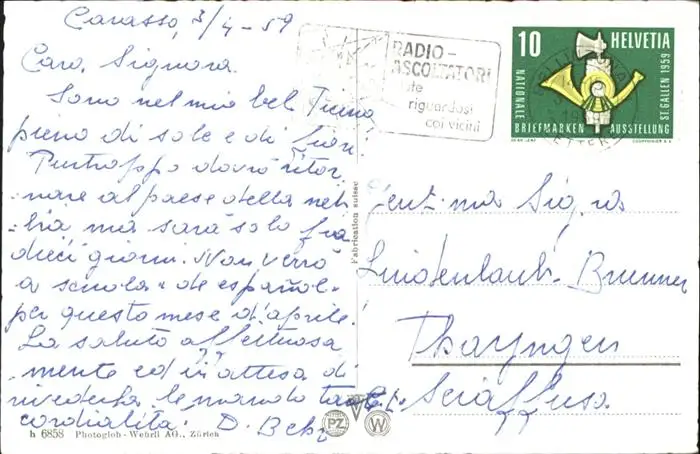 Carasso, 3/4-59
Cara Signora.
Sono nel mio bel Ticino
pieno di sole e di fiori
Purtroppo dovrò ritor
nare al paese della neb
bia ma sarà solo fra
dieci giorni. Non verrò
a scuola "de español"
per questo mese d'aprile.
La saluto affettuosa
mente ed in attesa di
rivederla le mando tante
cordialità. D.
h 6858 Photoglob-Wehrli AG., Zürich
Fabrication suisse
RADIO-
ASCOLTATORI
riguardosi
coi vicini
10 HELVETIA
NATIONALE
BRIEFMARKEN AUSSTELLUNG
ST. GALLEN 1959
BELLINZONA
LETTERE
Gent.ma Sig.ra
Lindenlaub-Brunner
Thayngen
Sciaffusa
PZ W